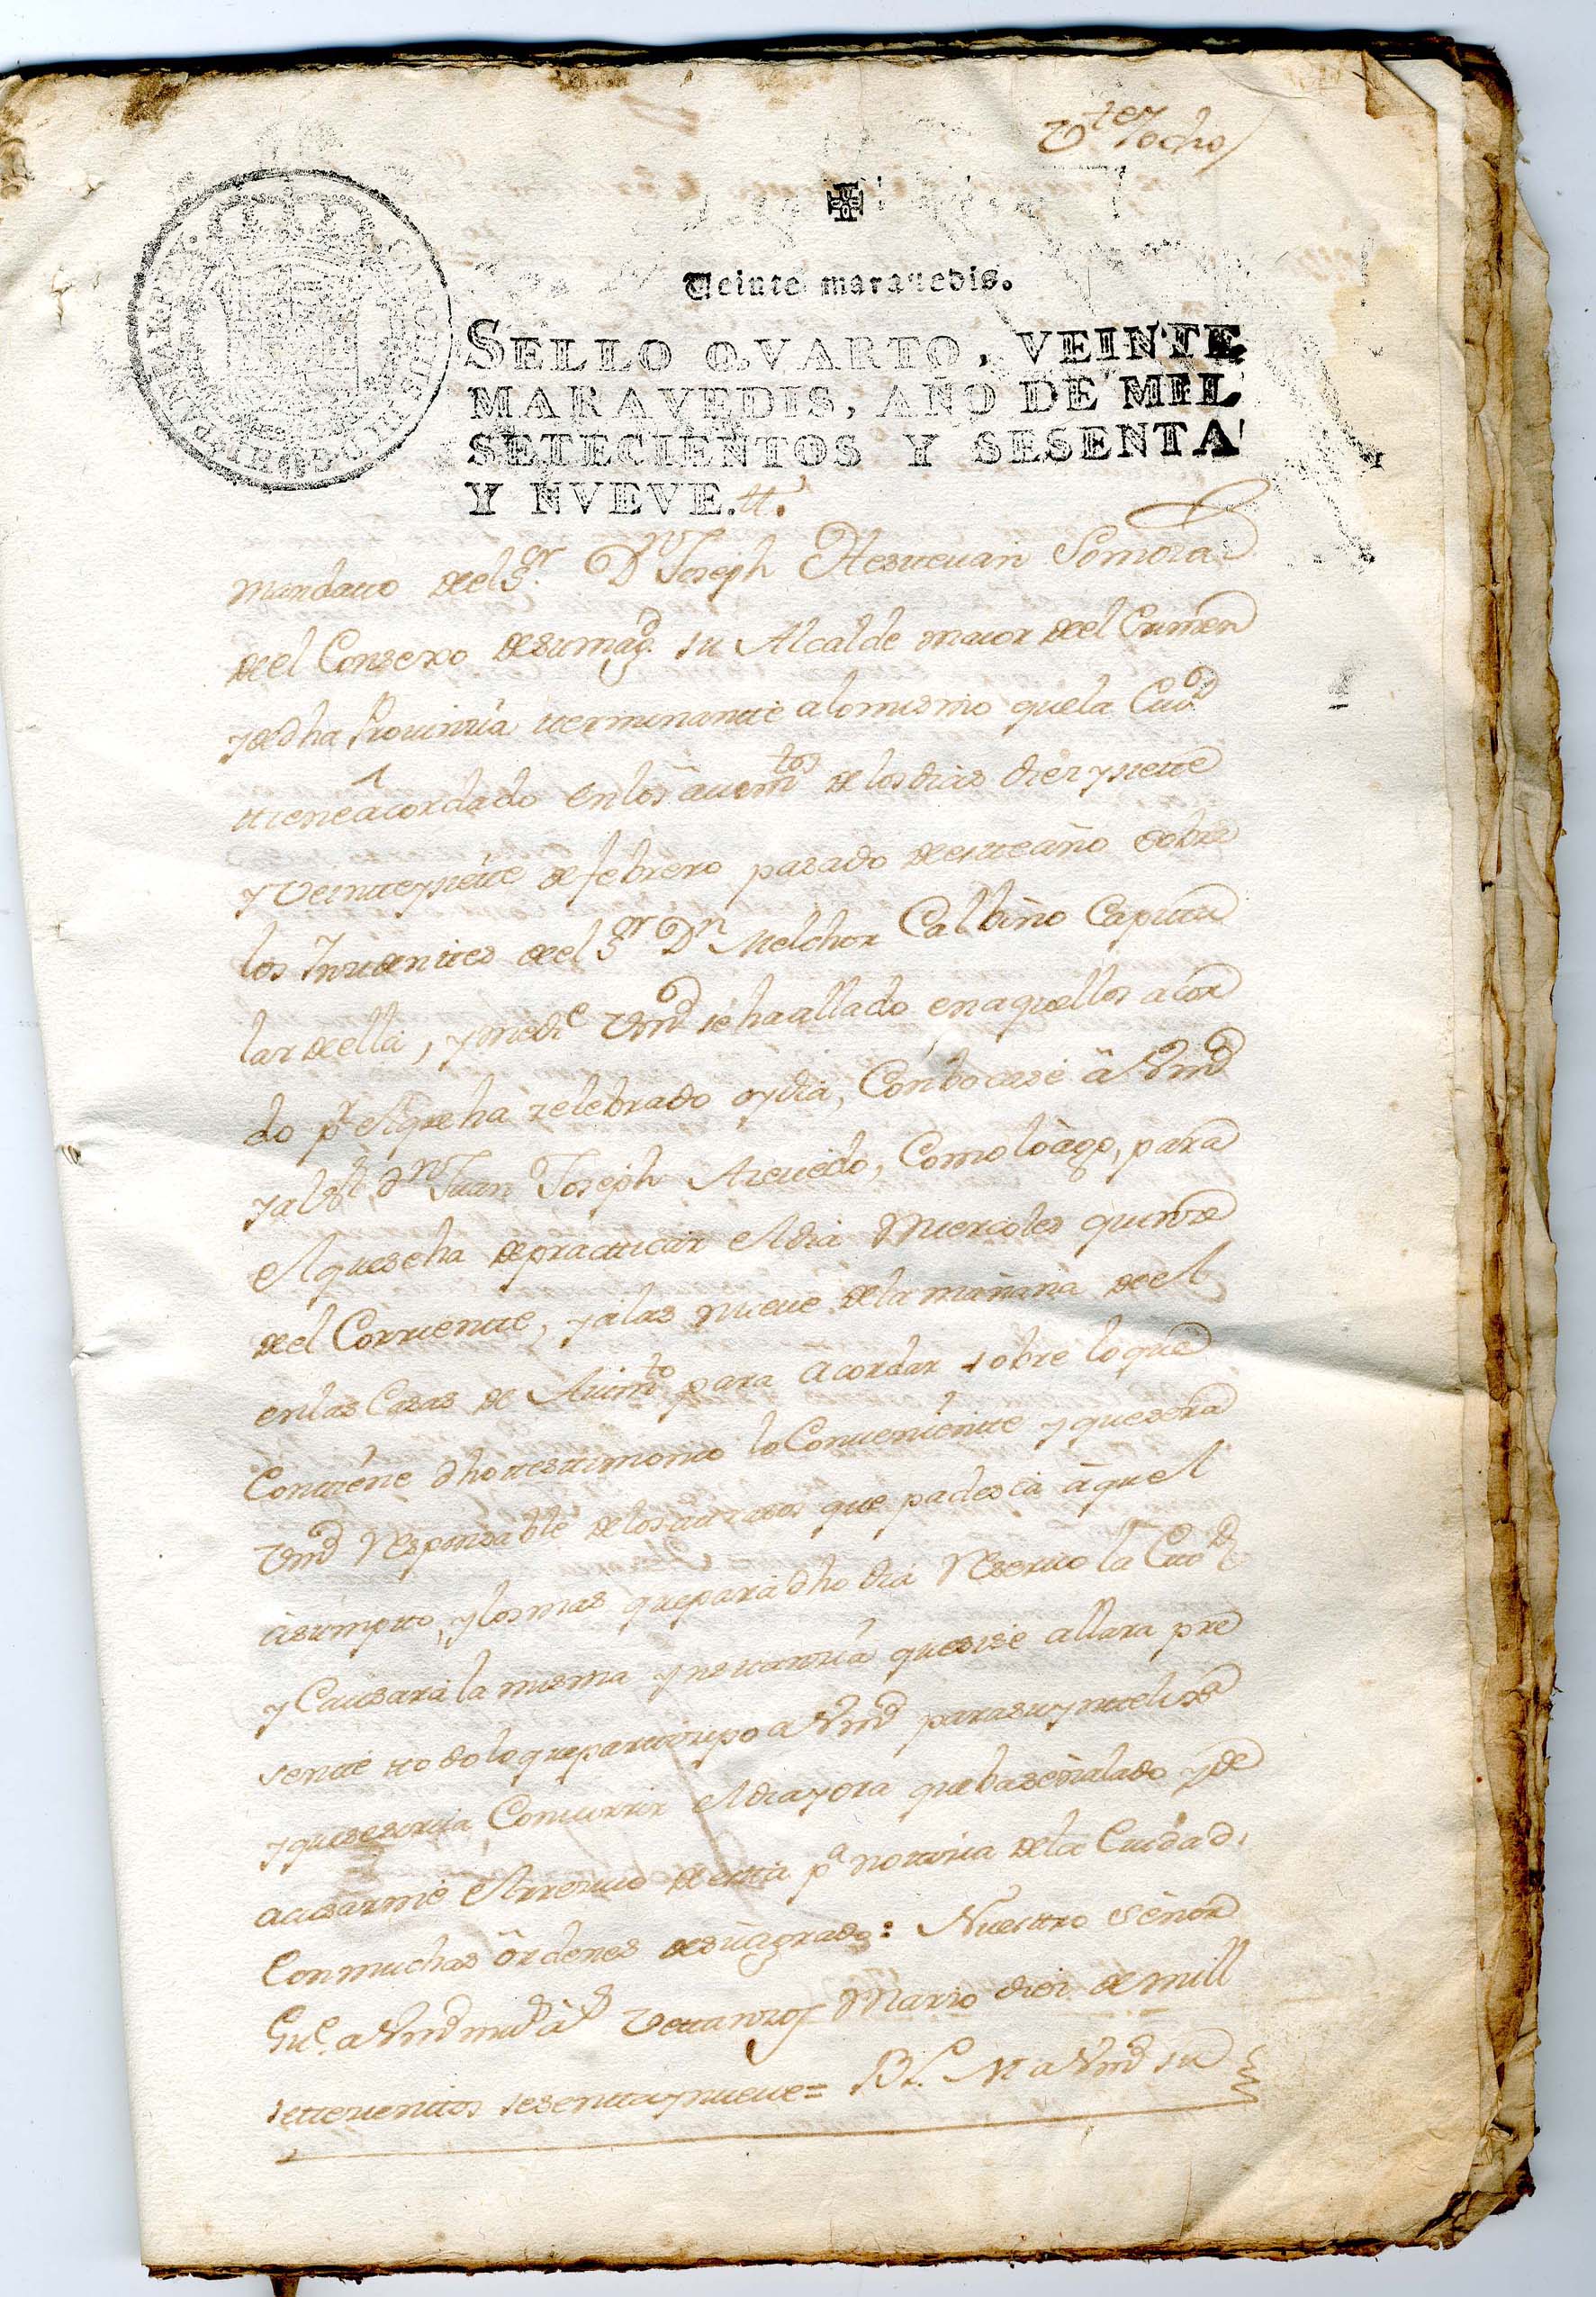 Vteyocho
Veinte maravedis.
SELLO QVARTO, VEINTE
MARAVEDIS, AÑO DE MIL
SETECIENTOS Y SESENTA
Y NVEVE.
CAROLUS III D G HISPANIAR REX
mandatto del Sr. Dn Joseph Esttevan
del Consexo desumagd. su Alcalde maior del Crimen
y de dha Provinzia tterminantte alomismo quela Ciud
ttiene acordado enlos aiuntmtos delos dias diez y siette
y Veintteysiette de febrero pasado destteaño sobre
los Inzidenttes del Sr Dn Melchor Calbiño Capittu
lar della, y medte Vmd se haallado enaquellos acor
do pr el que ha zelebrado oydia, Conbocase â Vmd
y al Sr Dn Juan Joseph Azevedo, Como lo ago, para
el quese ha depractticar el dia Miercoles quinze
del Corrientte, y alas nueve dela mañana deel
enlas Casas de Aiuntmto para acordar sobre loque
Conttiene dho testtimonio lo Combenientte y quesera
Vmd Responsable delos attrasos que padesca aquel
asumptto, y los mas que para dho dia Reservo la Ciud
y Causará la misma ynsttanzia quesise allara pre
sentte ttodo lo que partticipo a Vmd parasu yntteligs
y que se sirva Concurrir el dia y ora que ba señalado y de
acusarme el rrecivo de estta pa notticia dela Ciudad,
Con muchas ôrdenes desu agrado: Nuesttro señor
Gue. a Vmd ms as Vettanzos Marzo diez de mill
settezienttos sesenttaynueve= B L M a Vmd su